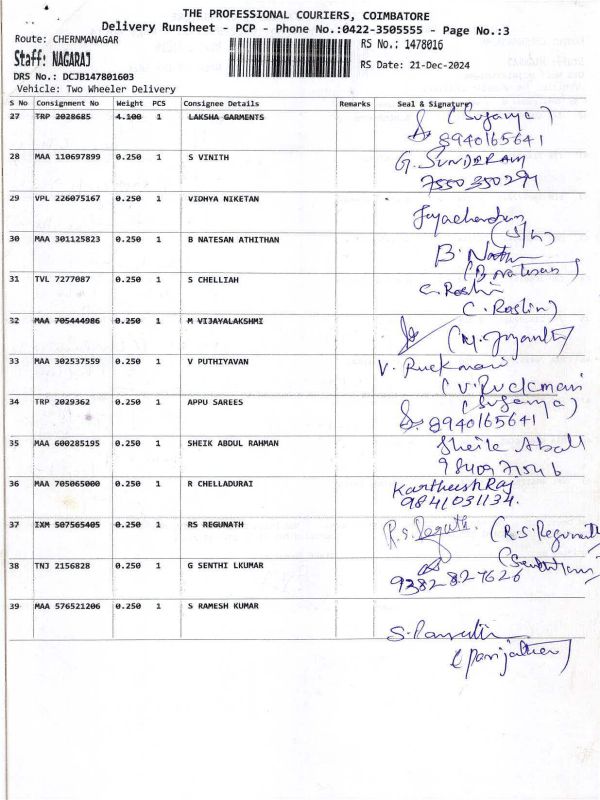 THE PROFESSIONAL COURIERS, COIMBATORE
Delivery Runsheet - PCP - Phone No.:0422-3505555 - Page No.:3
Route: CHERNMANAGAR
RS No.: 1478016
Staff: NAGARAJ
RS Date: 21-Dec-2024
DRS No.: DCJB147801603
Vehicle: Two Wheeler Delivery
S No Consignment No Weight PCS Consignee Details Remarks Seal & Signature
27 TRP 2028685 4.100 1 LAKSHA GARMENTS (Suganya)
8940165641
28 MAA 110697899 0.250 1 S VINITH G. SUNDARAM
7550350294
29 VPL 226075167 0.250 1 VIDHYA NIKETAN
30 MAA 301125823 0.250 1 B NATESAN ATHITHAN B.
(B Natesan)
31 TVL 7277087 0.250 1 S CHELLIAH C. Roslin
(C. Roslin)
32 MAA 705444986 0.250 1 M VIJAYALAKSHMI
33 MAA 302537559 0.250 1 V PUTHIYAVAN V. Ruckmani
(V. Ruckmani
34 TRP 2029362 0.250 1 APPU SAREES (Suganya)
8940165641
35 MAA 600285195 0.250 1 SHEIK ABDUL RAHMAN Sheik
36 MAA 705065000 0.250 1 R CHELLADURAI Kartheesh Raj
9841031134.
37 IXM 507565405 0.250 1 RS REGUNATH R.S. (R.S. Regunath
38 TNJ 2156828 0.250 1 G SENTHI LKUMAR
9382827626
39 MAA 576521206 0.250 1 S RAMESH KUMAR
S.